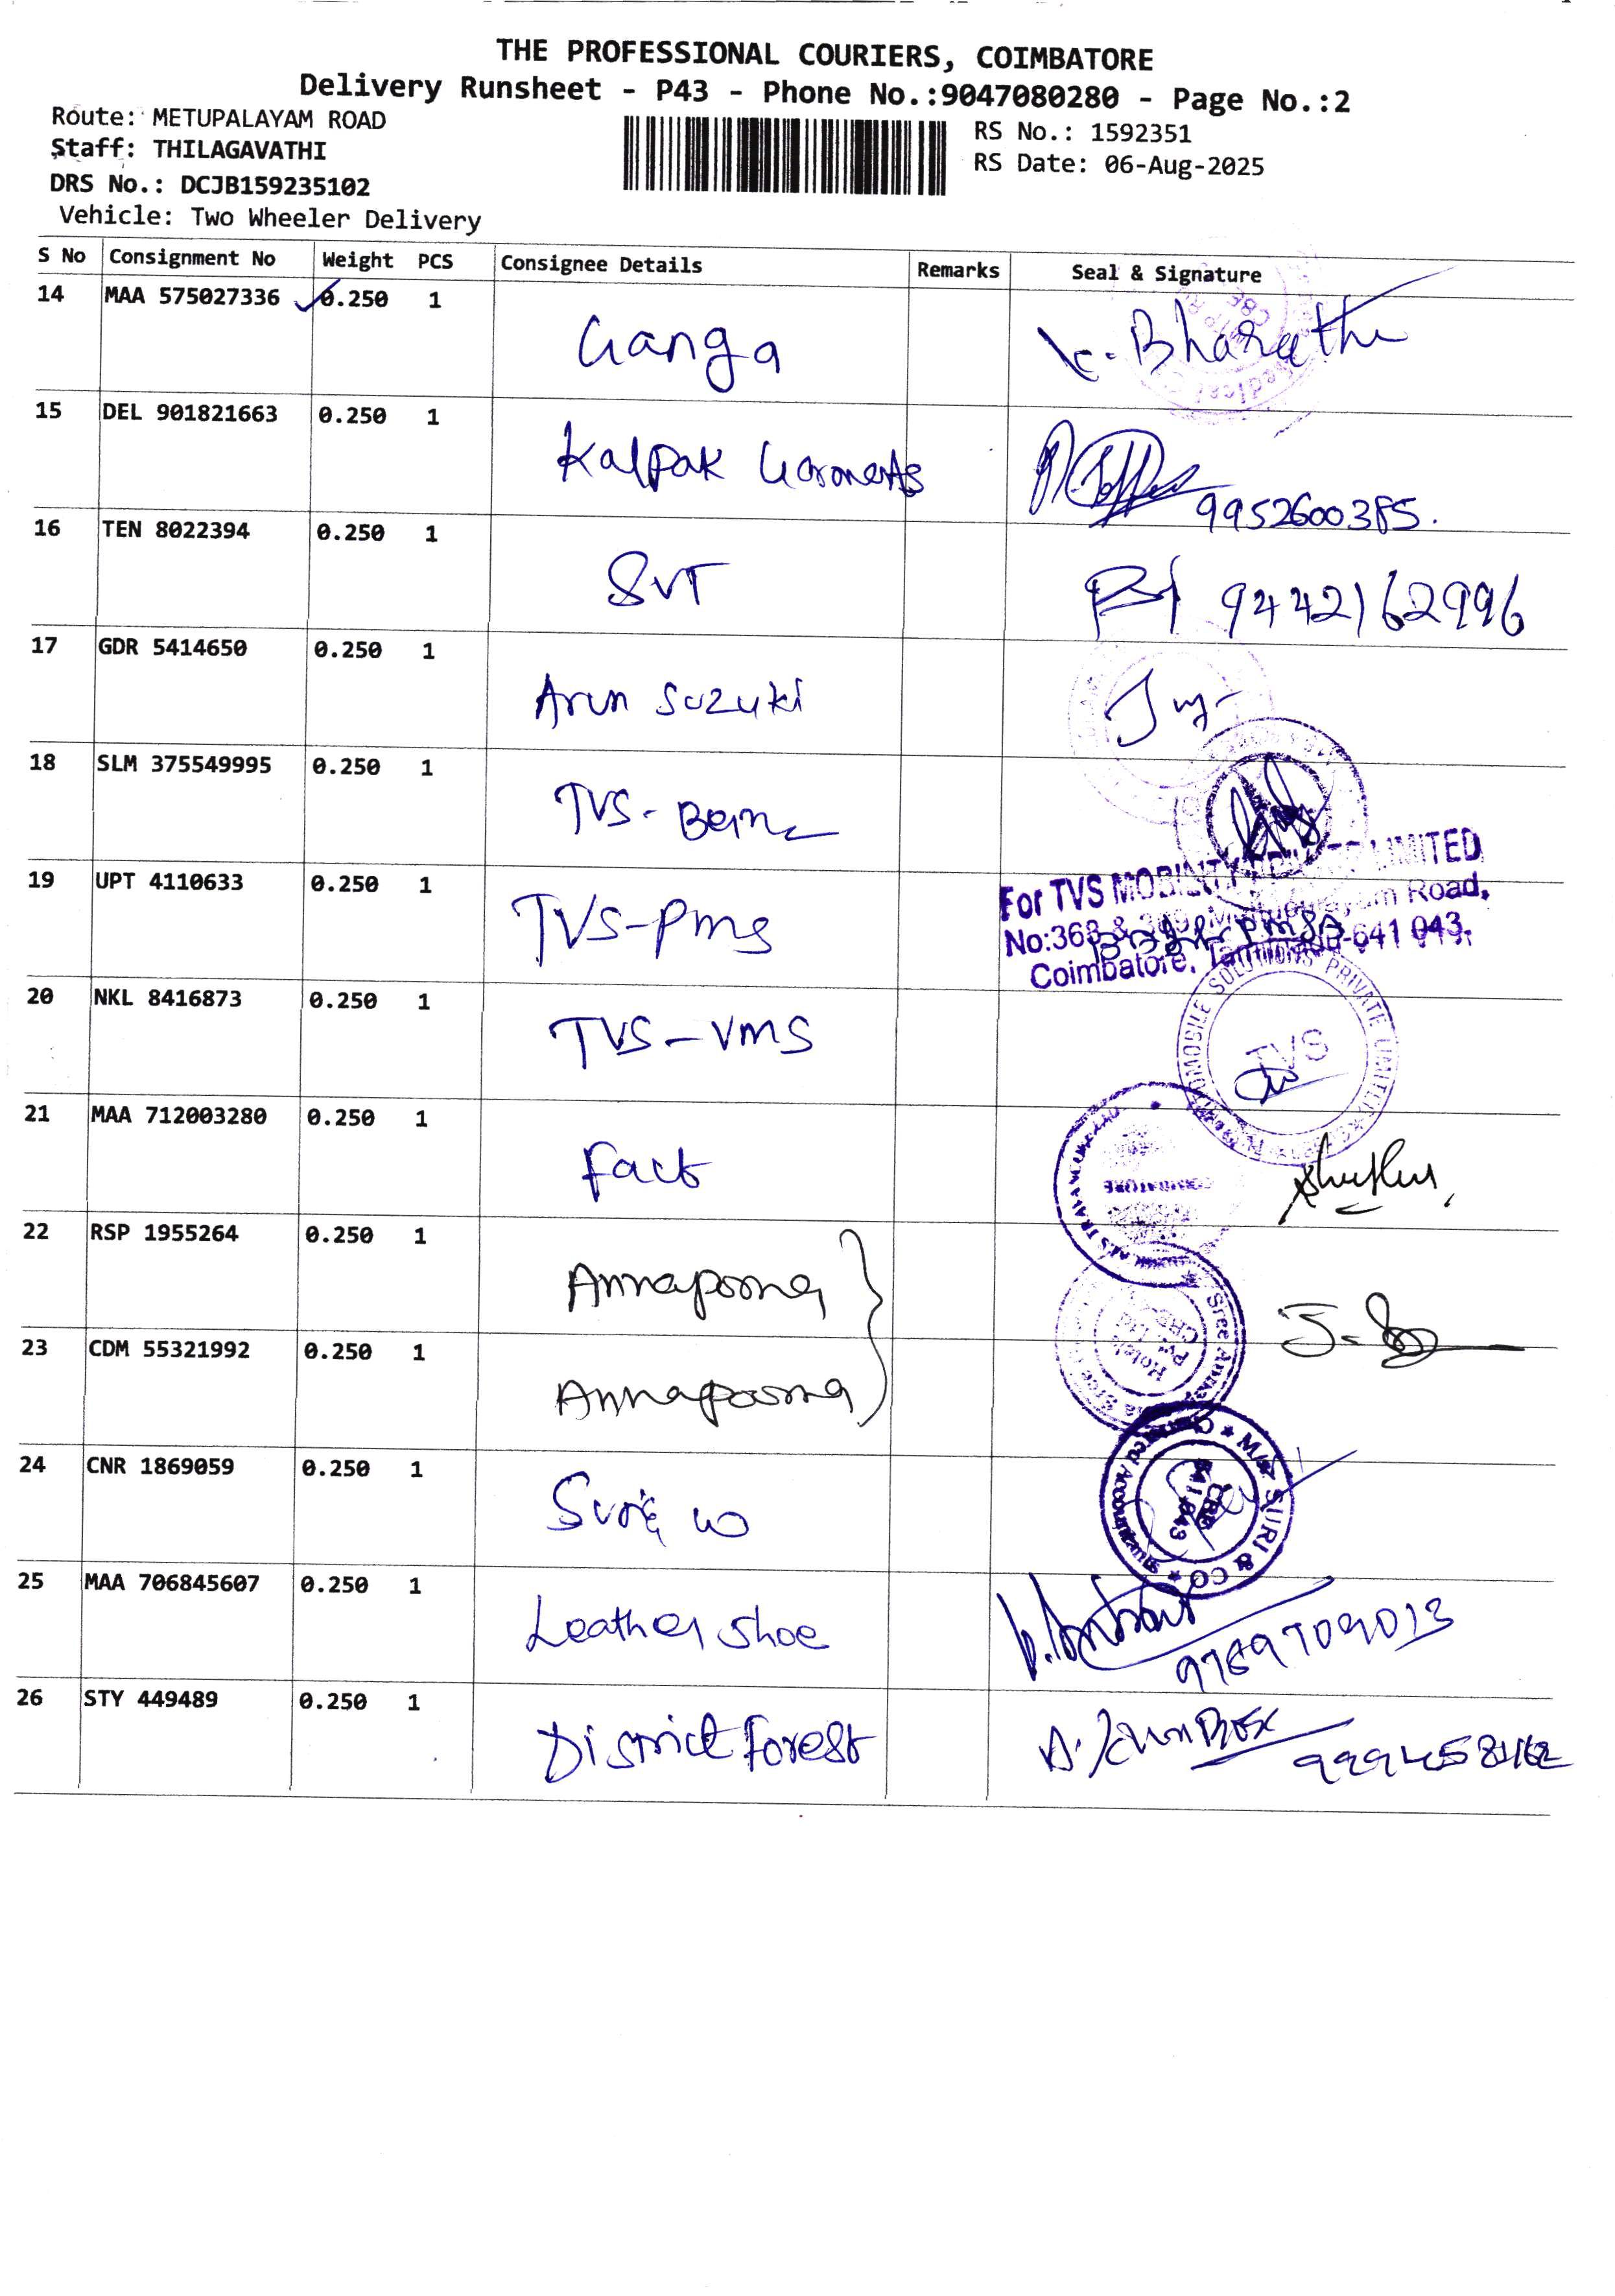 THE PROFESSIONAL COURIERS, COIMBATORE
Delivery Runsheet - P43 - Phone No.:9047080280 - Page No.:2
Route: METUPALAYAM ROAD
Staff: THILAGAVATHI
DRS No.: DCJB159235102
Vehicle: Two Wheeler Delivery
RS No.: 1592351
RS Date: 06-Aug-2025
S No Consignment No Weight PCS Consignee Details Remarks Seal & Signature
14 MAA 575027336 0.250 1 Ganga K. Bharathi
15 DEL 901821663 0.250 1 Kalpak Garments 9952600385.
16 TEN 8022394 0.250 1 SVT 9442162996
17 GDR 5414650 0.250 1 Arun Suzuki
18 SLM 375549995 0.250 1 TVS-
19 UPT 4110633 0.250 1 TVS-PMS
For TVS MOBILITY PRIVATE LIMITED
No:368 & 369, Mettupalayam Road,
Coimbatore, Tamilnadu-641 043.
20 NKL 8416873 0.250 1 TVS-VMS
AUTOMOBILE SOLUTIONS PRIVATE LIMITED
TVS
21 MAA 712003280 0.250 1 Fact
COIMBATORE
22 RSP 1955264 0.250 1 Annapoorna
23 CDM 55321992 0.250 1 Annapoorna
Sree
Hotels
Pvt. Ltd
CBE
24 CNR 1869059 0.250 1 Suri & co
M/s. SURI & CO
Chartered Accountants
CBE
641 043
25 MAA 706845607 0.250 1 Leather shoe 9789709013
26 STY 449489 0.250 1 District Forest